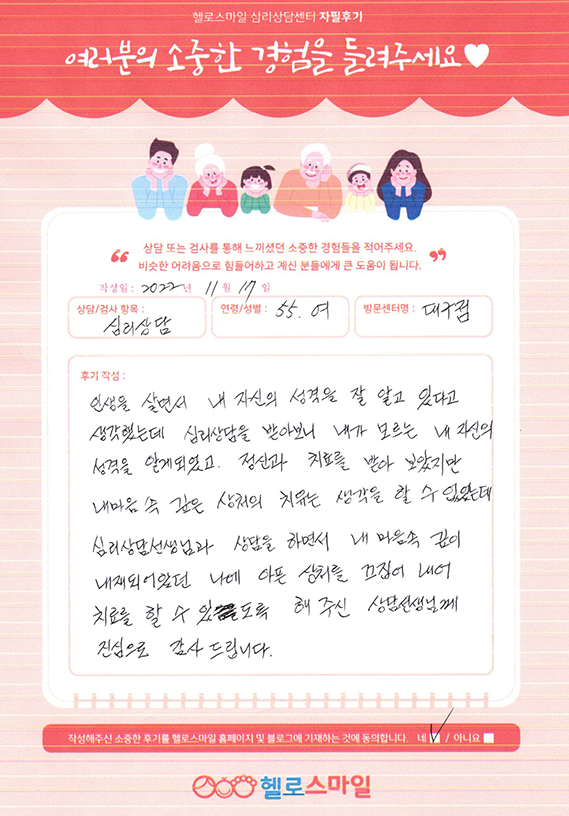 헬로스마일 심리상담센터 자필후기
여러분의 소중한 경험을 들려주세요♥
“ 상담 또는 검사를 통해 느끼셨던 소중한 경험들을 적어주세요. ”
비슷한 어려움으로 힘들어하고 계신 분들에게 큰 도움이 됩니다.
작성일 : 2022년 11월 17일
상담/검사 항목 : 심리상담 연령/성별 : 55. 여 방문센터명 : 대구점
후기 작성 :
인생을 살면서 내 자신의 성격을 잘 알고 있다고
생각했는데 심리상담을 받아보니 내가 모르는 내 자신의
성격을 알게되었고. 정신과 치료를 받아 보았지만
내마음 속 깊은 상처의 치유는 생각을 할 수 없었는데
심리상담선생님과 상담을 하면서 내 마음속 깊이
내재되어있던 나에 아픈 상처를 끄집어 내어
치료를 할 수 있도록 해 주신 상담선생님께
진심으로 감사 드립니다.
작성해주신 소중한 후기를 헬로스마일 홈페이지 및 블로그에 기재하는 것에 동의합니다. 네 ✓ / 아니요
헬로스마일